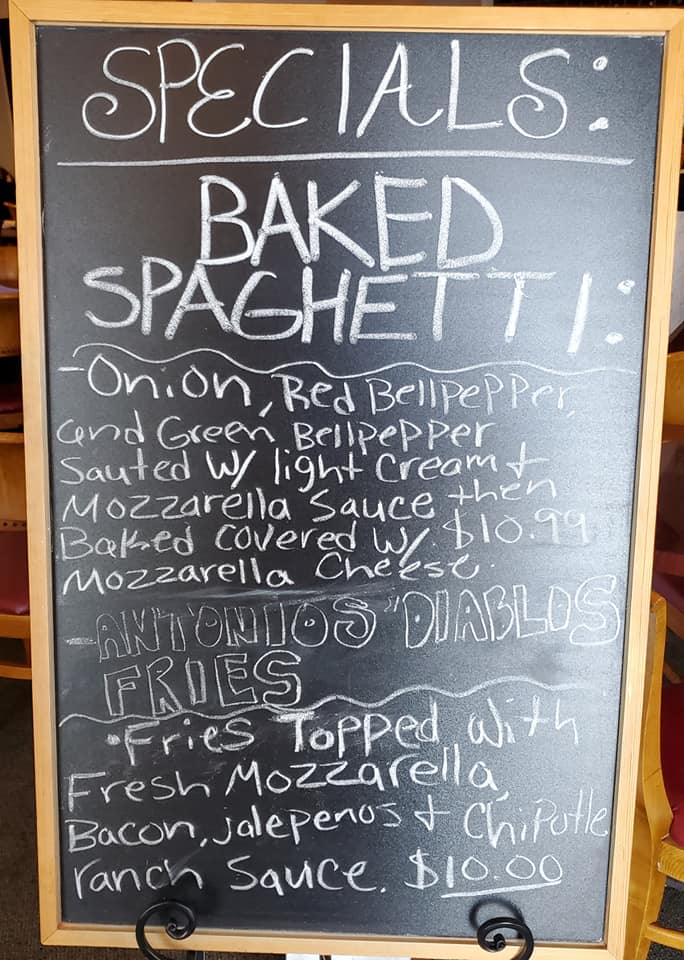 SPECIALS:
BAKED
SPAGHETTI:
-Onion, Red Bellpepper,
and Green Bellpepper
Sauted W/ light Cream +
Mozzarella Sauce then
Baked covered W/ $10.99
Mozzarella Cheese.
-ANTONIOS "DIABLOS
FRIES
•Fries Topped with
Fresh Mozzarella,
Bacon, jalepenos + Chipotle
ranch Sauce. $10.00